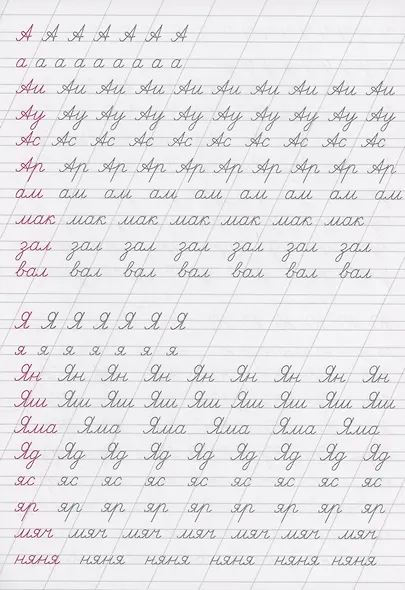 А А А А А А А
а а а а а а а а а
Аи Аи Аи Аи Аи Аи Аи Аи Аи
Ау Ау Ау Ау Ау Ау Ау Ау Ау
Ас Ас Ас Ас Ас Ас Ас Ас Ас Ас
Ар Ар Ар Ар Ар Ар Ар Ар Ар Ар
ам ам ам ам ам ам ам ам ам
мак мак мак мак мак мак мак
зал зал зал зал зал зал зал
вал вал вал вал вал вал вал
Я Я Я Я Я Я Я
я я я я я я я
Ян Ян Ян Ян Ян Ян Ян Ян Ян
Яш Яш Яш Яш Яш Яш Яш Яш Яш
Яма Яма Яма Яма Яма Яма
Яд Яд Яд Яд Яд Яд Яд Яд Яд
яс яс яс яс яс яс яс яс яс
яр яр яр яр яр яр яр яр яр
мяч мяч мяч мяч мяч мяч мяч
няня няня няня няня няня няня